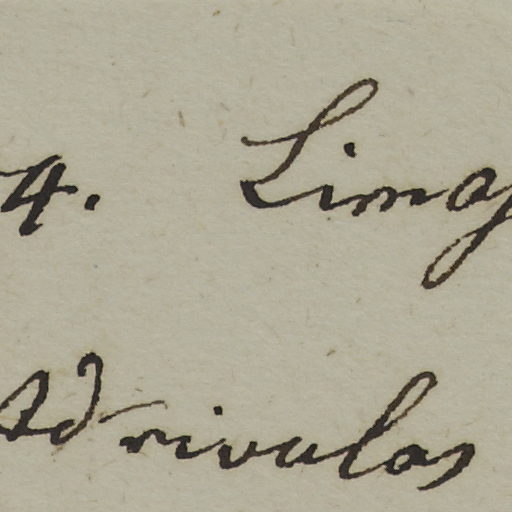 4. Lima
Ad rivulos